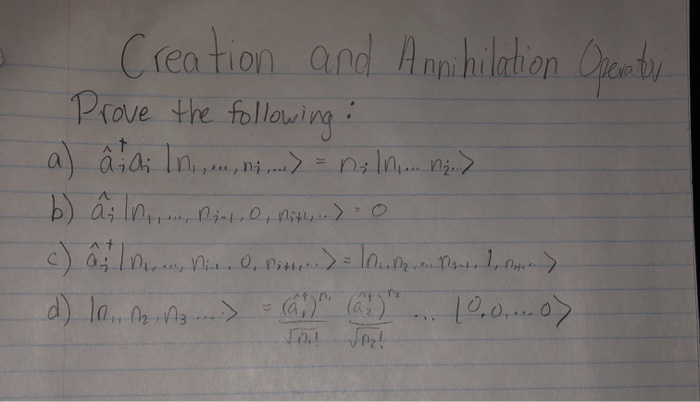 Creation and Annihilation Operator
Prove the following:
a) â†ᵢaᵢ |n₁,...,nᵢ,...> = nᵢ|n₁...nᵢ..>
b) âᵢ|n₁,...,nᵢ₋₁,0,nᵢ₊₁,...> = 0
c) âᵢ†|n₁,...,nᵢ₋₁,0,nᵢ₊₁,...> = |n₁,n₂,...nᵢ₋₁,1,nᵢ₊₁...>
d) |n₁,n₂,n₃....> = (â₁†)ⁿ¹/√n₁! (â₂†)ⁿ²/√n₂! ... |0,0,...0>